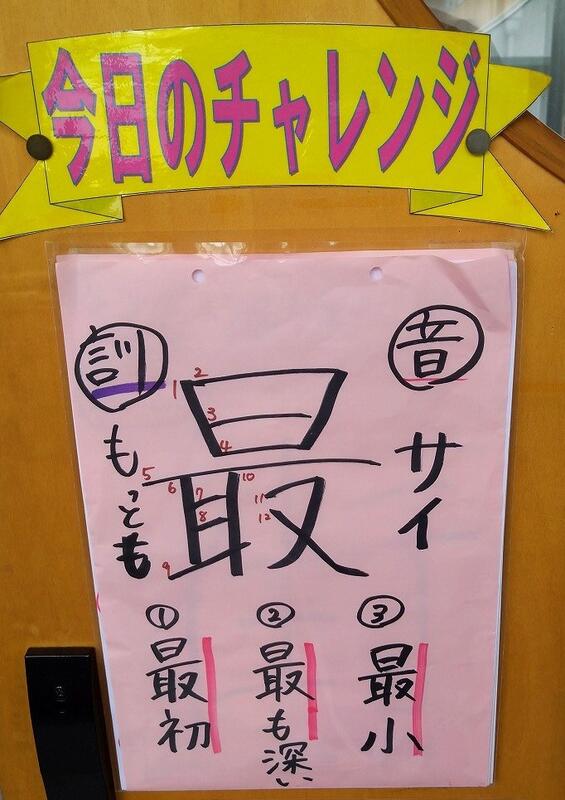 今日のチャレンジ
音
サイ
訓
もっとも
最
1
2
3
4
5
6
7
8
9
10
11
12
①
最初
②
最も深い
③
最小